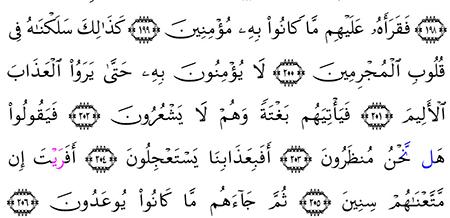 ﴿١٩٨﴾ فَقَرَأَهُۥ عَلَيْهِم مَّا كَانُوا۟ بِهِۦ مُؤْمِنِينَ ﴿١٩٩﴾ كَذَٰلِكَ سَلَكْنَٰهُ فِى
قُلُوبِ ٱلْمُجْرِمِينَ ﴿٢٠٠﴾ لَا يُؤْمِنُونَ بِهِۦ حَتَّىٰ يَرَوُا۟ ٱلْعَذَابَ
ٱلْأَلِيمَ ﴿٢٠١﴾ فَيَأْتِيَهُم بَغْتَةً وَهُمْ لَا يَشْعُرُونَ ﴿٢٠٢﴾ فَيَقُولُوا۟
هَل نَّحْنُ مُنظَرُونَ ﴿٢٠٣﴾ أَفَبِعَذَابِنَا يَسْتَعْجِلُونَ ﴿٢٠٤﴾ أَفَرَيْتَ إِن
مَّتَّعْنَٰهُمْ سِنِينَ ﴿٢٠٥﴾ ثُمَّ جَآءَهُم مَّا كَانُوا۟ يُوعَدُونَ ﴿٢٠٦﴾